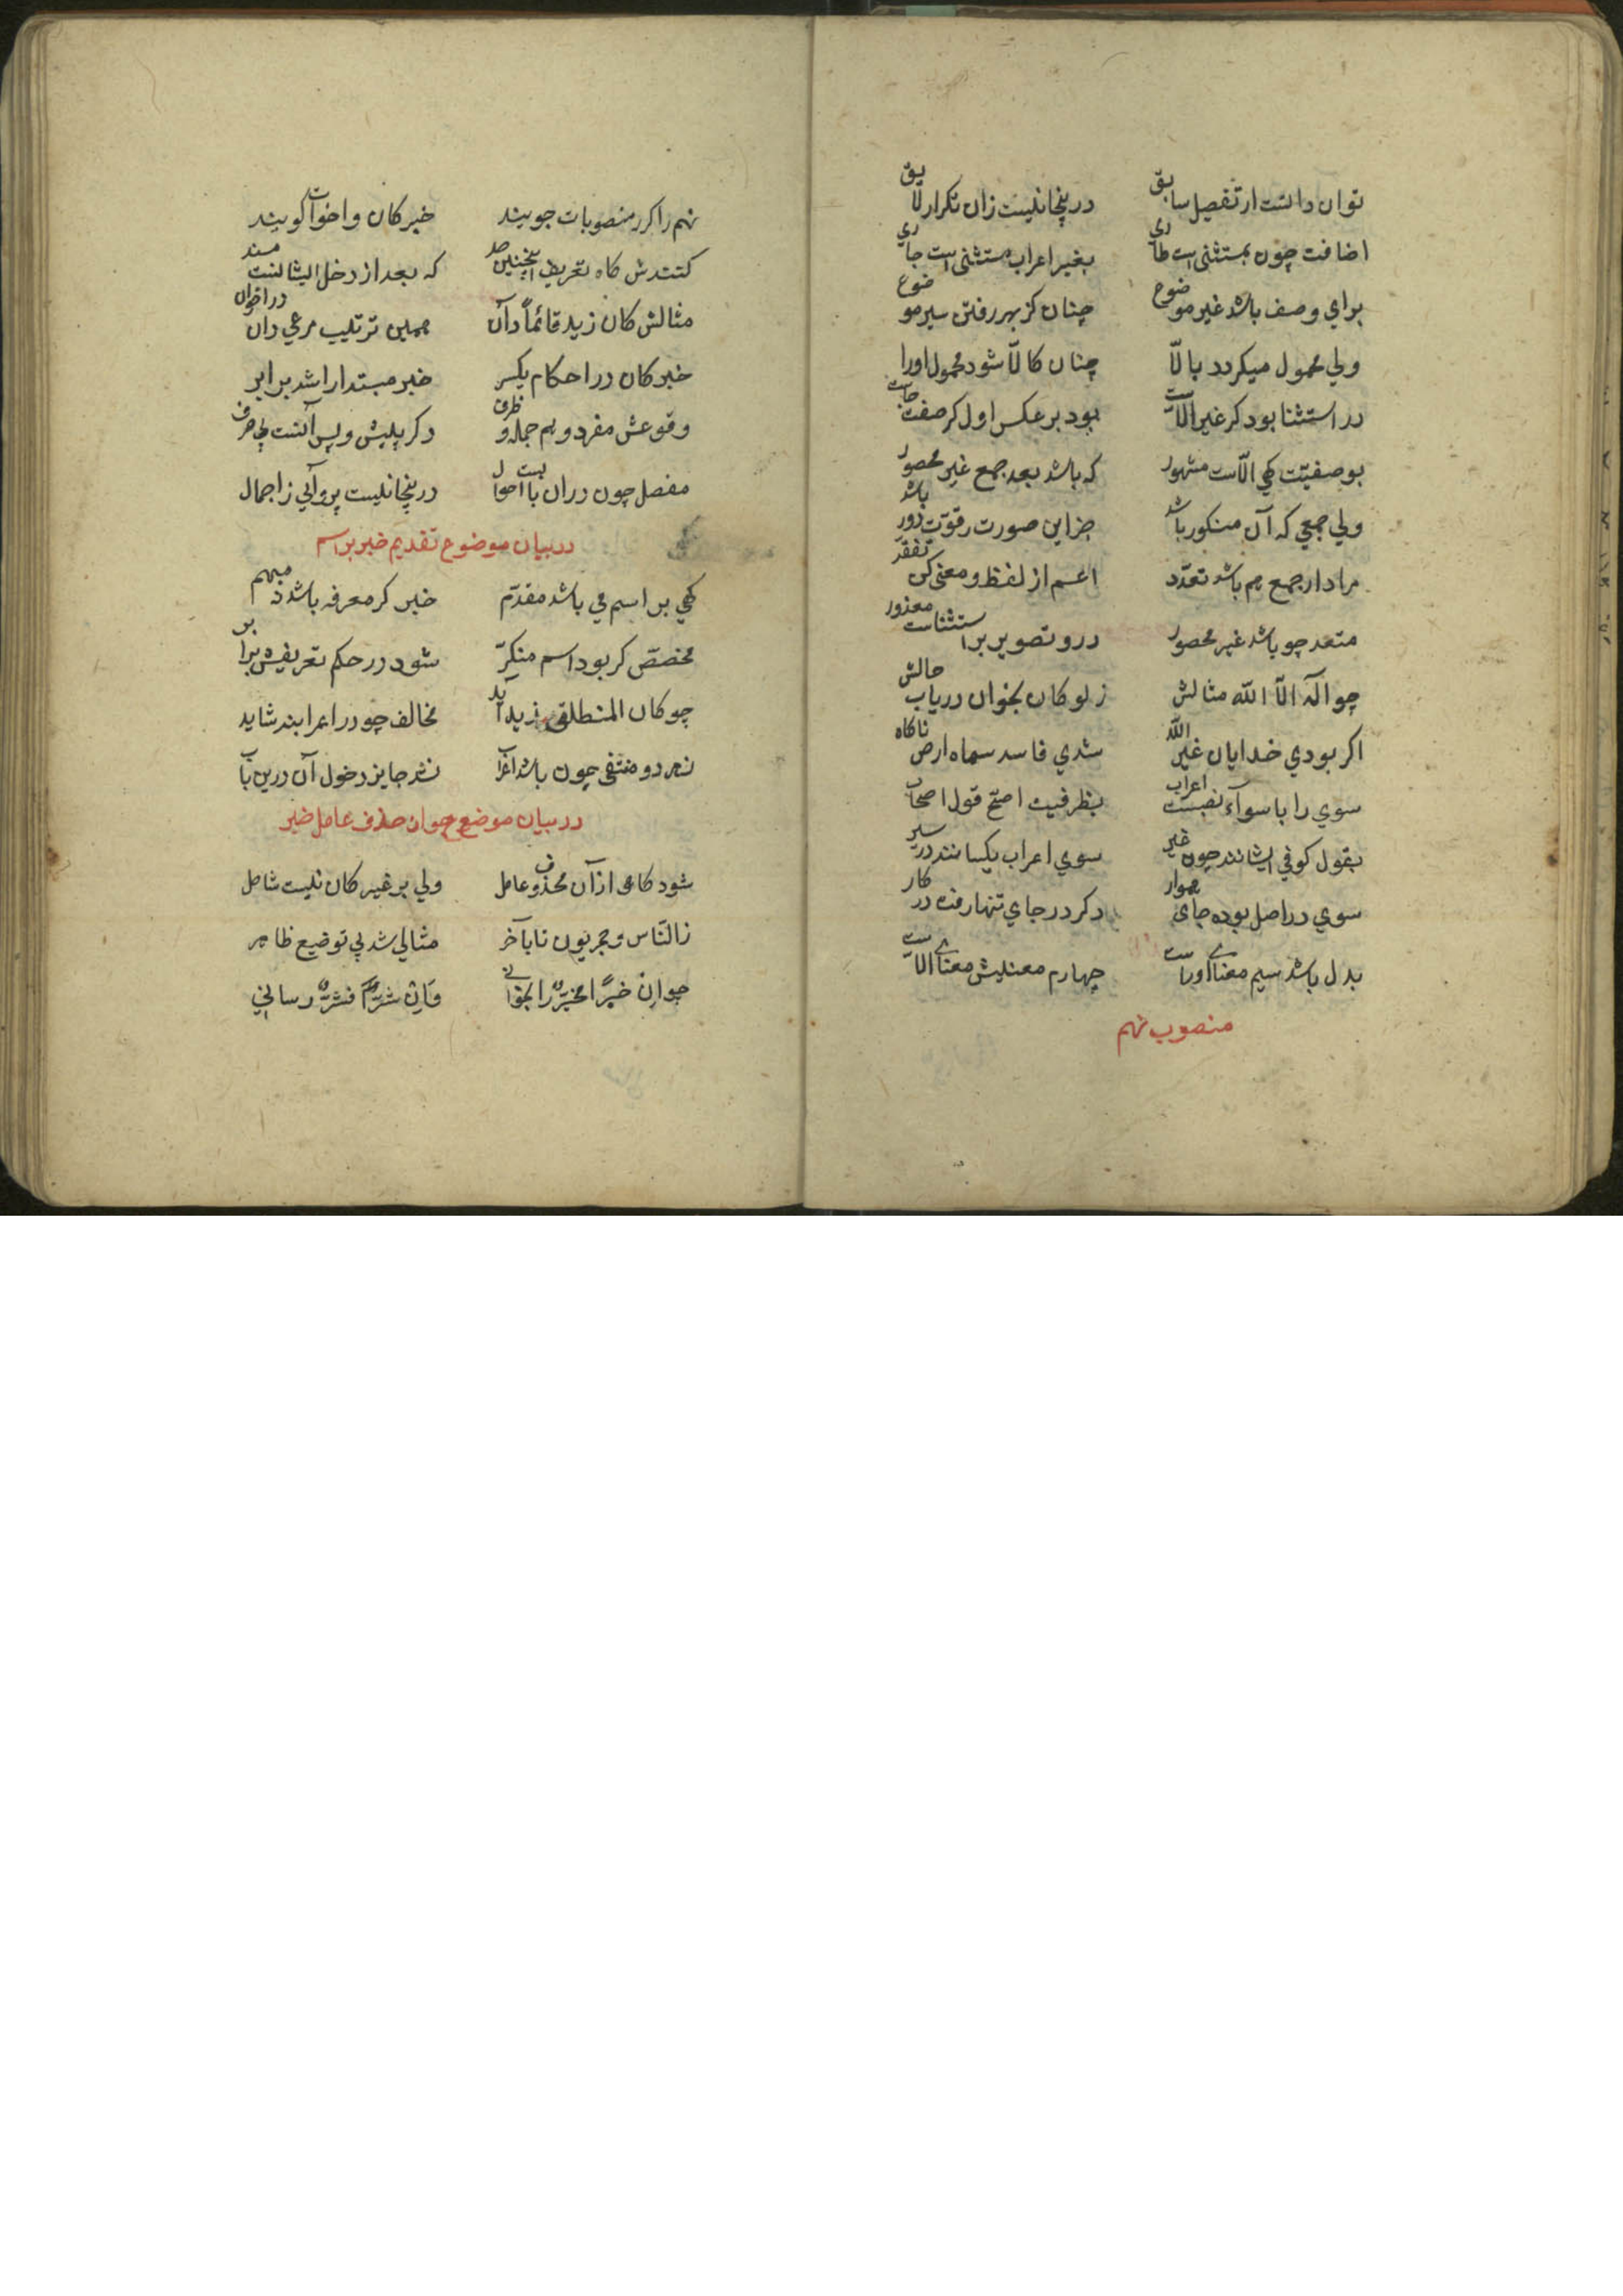 توان دانست از تفصیل سابق درینجا نیست زان تکرار لایق
اضافت چون بمستثنی است طاری بغیر اعراب مستثنی است جاری
برای وصف باشد غیر موضوع چنان کز بهر رفتن سیر موضوع
ولی محمول میکردد بالّا چنان کالّا شود محمول اورا
در استثنا بود کر غیر الّاست بود بر عکس اول کر صفت خاست
بوصفیّت کهی الّاست مشهور که باشد بعد جمع غیر محصور
ولی جمعی که آن منکور باشد جز این صورت رقوّت دور باشد
مراد از جمع هم باشد تعدّد اعم از لفظ و معنی کن تفقد
متعدد چو باشد غیر محصور درو تصویر براستثناست معذور
چو آلهة الّا اللّه مثالش ز لو کان بخوان دریاب حالش
اکر بودی خدایان غیر اللّه شدی فاسد سماه ارض ناکاه
سوی را با سوآء نصبست اعراب بظرفیت اصحّ قول اصحاب
بقول کوفی ایشانند چون غیر سوی اعراب یکسانند در سیر
سوی در اصل بوده جای هموار دکر در جای تنها رفته در کار
بدل باشد سیم معنای اوراست چهارم معنیش معنای الّاست
منصوب نهم
نهم را کر منصوبات جویند خبر کان و اخوات کویند
کنندش کاه تعریف اینچنین صد که بعد از دخل ایشانست مسند
مثالش کان زید قائماً دان همین ترتیب مرعی دان در اخوان
خبر کان در احکام یکسر خبر مبتدا را شد برابر
وقوعش مفرد و هم جمله و ظرف دکر پیش و پس آنست بی حرف
مفصل چون در ان بابست احوال درینجا نیست پروآیی ز اجمال
در بیان موضوع تقدیم خبر بر اسم
کهی بر اسم می باشد مقدّم خبر کر معرفه باشد نه مبهم
مخصّص کر بود اسم منکّر شود در حکم تعریفش برابر
چو کان المنطلق زید آید مخالف چو در اعرابند شاید
ز هر دو منتفی چون باشد اعراب نشد جایز دخول آن درین باب
در بیان موضع جواز حذف عامل خبر
شود کاهی ازآن محذوف عامل ولی بر غیر کان نیست شامل
ز الناس و مجزیون تا بآخر مثالی شد پی توضیع ظاهر
جوانِ خیرًا فخیرٌ را بخوانی وَاِن شرًّا فشرٌّ رسانی